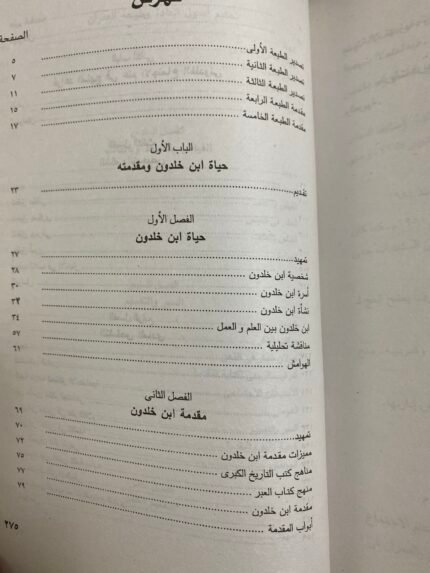 فهرس
الصفحة
تصدير الطبعة الأولى ٥
تصدير الطبعة الثانية ٧
تصدير الطبعة الثالثة ١١
مقدمة الطبعة الرابعة ١٥
مقدمة الطبعة الخامسة ١٧
الباب الأول
حياة ابن خلدون ومقدمته
تقديم ٢٣
الفصل الأول
حياة ابن خلدون
تمهيد ٢٧
شخصية ابن خلدون ٢٨
أسرة ابن خلدون ٣٠
نشأة ابن خلدون ٣٢
ابن خلدون بين العلم و العمل ٣٤
مناقشة تحليلية ٥٧
الهوامش ٦١
الفصل الثانى
مقدمة ابن خلدون
تمهيد ٦٩
مميزات مقدمة ابن خلدون ٧٠
مناهج كتب التاريخ الكبرى ٧٢
منهج كتاب العبر ٧٥
مقدمة ابن خلدون ٧٧
أبواب المقدمة ٧٩
٢٧٥